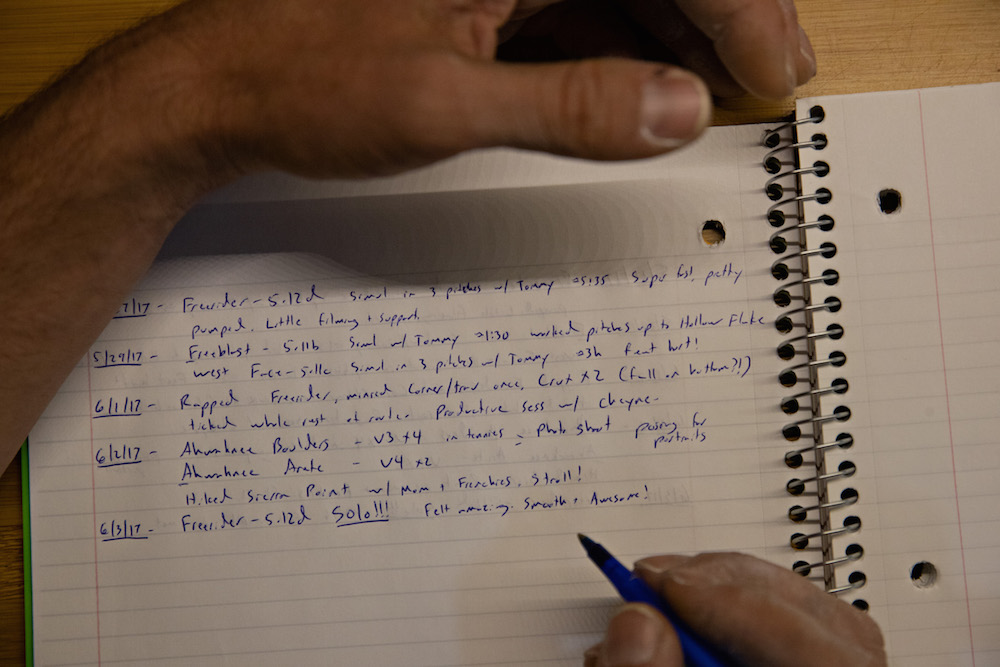 7/17 - Freerider - 5.12d Simul in 3 pitches w/ Tommy 5:35 Super fast, pretty
pumped. Little filming + support.
5/29/17 - Freeblast - 5.11b Simul w/ Tommy 1:30 worked pitches up to Hollow Flake
West Face - 5.11c Simul in 3 pitches w/ Tommy 3h feet hurt!
6/1/17 - Rapped Freerider, mimed corner/trav once, Crux x2 (fell on bottom?!)
ticked whole rest of route. Productive sess w/ Cheyne.
6/2/17 - Ahwahnee Boulders - V3 x4 in tennies - Photo shoot posing for portraits
Ahwahnee Arete - V4 x2
Hiked Sierra Point w/ Mom + Frenchies. Stroll!
6/3/17 - Freerider - 5.12d Solo!!! Felt amazing. Smooth + Awesome!